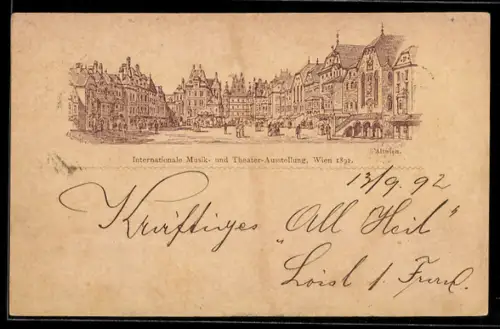 Alt-Wien.
Internationale Musik- und Theater-Ausstellung, Wien 1892.
13/9. 92
Kräftiges „All Heil"
Loisl